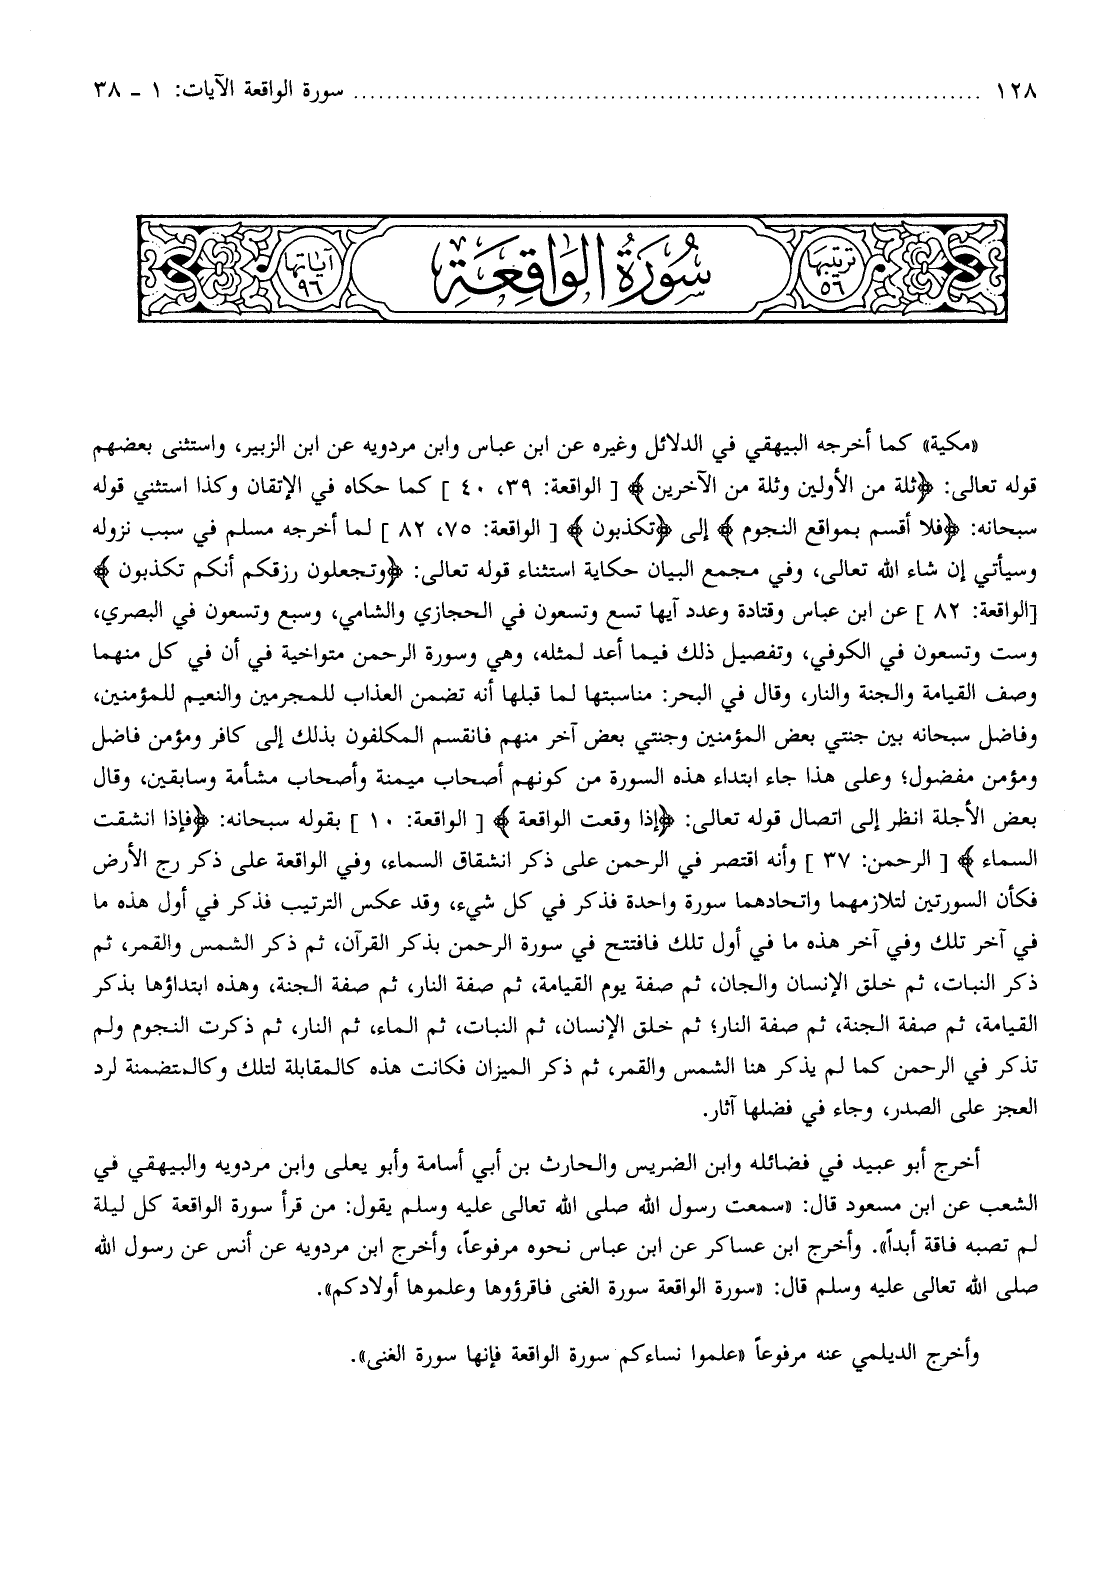 ١٢٨ .......................................................................... سورة الواقعة الآيات: ١ - ٣٨
ترتيبها
٥٦
سُورَةُ الوَاقِعَةِ
آياتها
٩٦
«مكية» كما أخرجه البيهقي في الدلائل وغيره عن ابن عباس وابن مردويه عن ابن الزبير، واستثنى بعضهم
قوله تعالى: ﴿ثلة من الأولين وثلة من الآخرين﴾ [ الواقعة: ٣٩، ٤٠ ] كما حكاه في الإتقان وكذا استثني قوله
سبحانه: ﴿فلا أقسم بمواقع النجوم﴾ إلى ﴿تكذبون﴾ [ الواقعة: ٧٥، ٨٢ ] لما أخرجه مسلم في سبب نزوله
وسيأتي إن شاء الله تعالى، وفي مجمع البيان حكاية استثناء قوله تعالى: ﴿وتجعلون رزقكم أنكم تكذبون﴾
[الواقعة: ٨٢ ] عن ابن عباس وقتادة وعدد آيها تسع وتسعون في الحجازي والشامي، وسبع وتسعون في البصري،
وست وتسعون في الكوفي، وتفصيل ذلك فيما أعد لمثله، وهي وسورة الرحمن متواخية في أن في كل منهما
وصف القيامة والجنة والنار، وقال في البحر: مناسبتها لما قبلها أنه تضمن العذاب للمجرمين والنعيم للمؤمنين،
وفاضل سبحانه بين جنتي بعض المؤمنين وجنتي بعض آخر منهم فانقسم المكلفون بذلك إلى كافر ومؤمن فاضل
ومؤمن مفضول؛ وعلى هذا جاء ابتداء هذه السورة من كونهم أصحاب ميمنة وأصحاب مشأمة وسابقين، وقال
بعض الأجلة انظر إلى اتصال قوله تعالى: ﴿إذا وقعت الواقعة﴾ [ الواقعة: ١٠ ] بقوله سبحانه: ﴿فإذا انشقت
السماء﴾ [ الرحمن: ٣٧ ] وأنه اقتصر في الرحمن على ذكر انشقاق السماء، وفي الواقعة على ذكر رج الأرض
فكأن السورتين لتلازمهما واتحادهما سورة واحدة فذكر في كل شيء، وقد عكس الترتيب فذكر في أول هذه ما
في آخر تلك وفي آخر هذه ما في أول تلك فافتتح في سورة الرحمن بذكر القرآن، ثم ذكر الشمس والقمر، ثم
ذكر النبات، ثم خلق الإنسان والجان، ثم صفة يوم القيامة، ثم صفة النار، ثم صفة الجنة، وهذه ابتداؤها بذكر
القيامة، ثم صفة الجنة، ثم صفة النار؛ ثم خلق الإنسان، ثم النبات، ثم الماء، ثم النار، ثم ذكرت النجوم ولم
تذكر في الرحمن كما لم يذكر هنا الشمس والقمر، ثم ذكر الميزان فكانت هذه كالمقابلة لتلك وكالمتضمنة لرد
العجز على الصدر، وجاء في فضلها آثار.
أخرج أبو عبيد في فضائله وابن الضريس والحارث بن أبي أسامة وأبو يعلى وابن مردويه والبيهقي في
الشعب عن ابن مسعود قال: «سمعت رسول الله صلى الله تعالى عليه وسلم يقول: من قرأ سورة الواقعة كل ليلة
لم تصبه فاقة أبداً». وأخرج ابن عساكر عن ابن عباس نحوه مرفوعاً، وأخرج ابن مردويه عن أنس عن رسول الله
صلى الله تعالى عليه وسلم قال: «سورة الواقعة سورة الغنى فاقرؤوها وعلموها أولادكم».
وأخرج الديلمي عنه مرفوعاً «علموا نساءكم سورة الواقعة فإنها سورة الغنى».